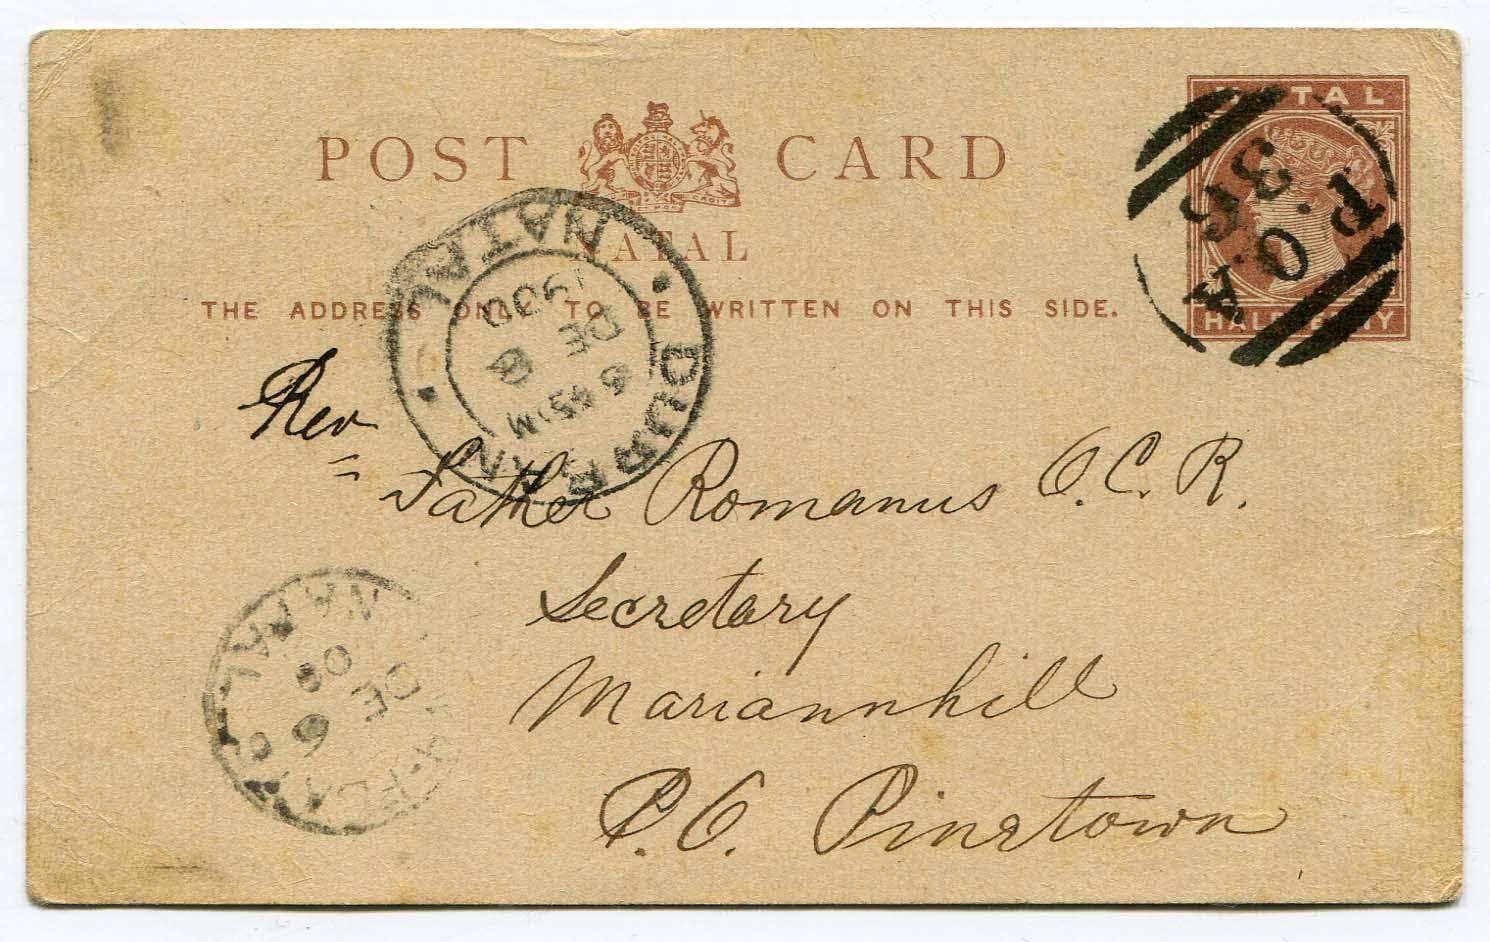 NATAL
HALFPENNY
P.O.A
35
POST CARD
NATAL
THE ADDRESS ONLY TO BE WRITTEN ON THIS SIDE.
DURBAN
NATAL
6 45 PM
DE 8
1900
Rev
Father Romanus O.C.R.
Secretary
Mariannhill
P.O. Pinetown
NATAL
DE 6
00